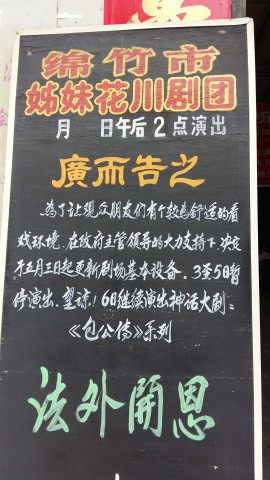 绵竹市
姊妹花川剧团
月 日午后2点演出
廣而告之
为了让观众朋友们有个较为舒适的看
戏环境、在政府主管领导的大力支持下、决定
于五月三日起更新剧场基本设备、3至5日暂
停演出、望谅！6日继续演出神话大剧：
《包公传》系列
法外開恩